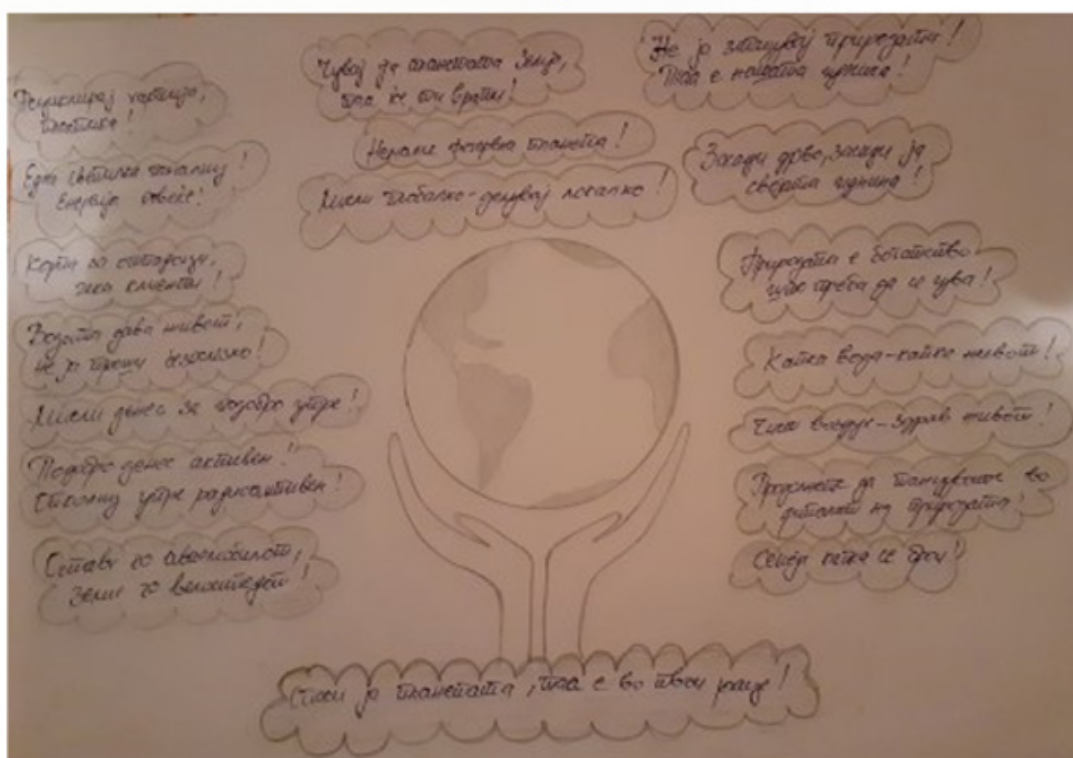 Рециклирај хартија,
пластика!
Една светилка помалку!
Енергија повеќе!
Корпи за отпадоци,
нека клиенти!
Водата дава живот,
не ја троши безобѕирно!
Мисли денес за подобро утре!
Подобро денес активен!
Отколку утре радиоактивен!
Остави го автомобилот,
земи го велосипедот!
Чувај ја планетата Земја,
таа ќе ти врати!
Немаме резервна планета!
Мисли глобално-делувај локално!
Не ја загадувај природата!
Таа е нашата иднина!
Засади дрво, засади ја
својата иднина!
Природата е богатство
што треба да се чува!
Капка вода-капка живот!
Чист воздух-здрав живот!
Продолжете да танцувате во
ритамот на природата!
Секоја капка се брои!
Спаси ја планетата, таа е во твои раце!